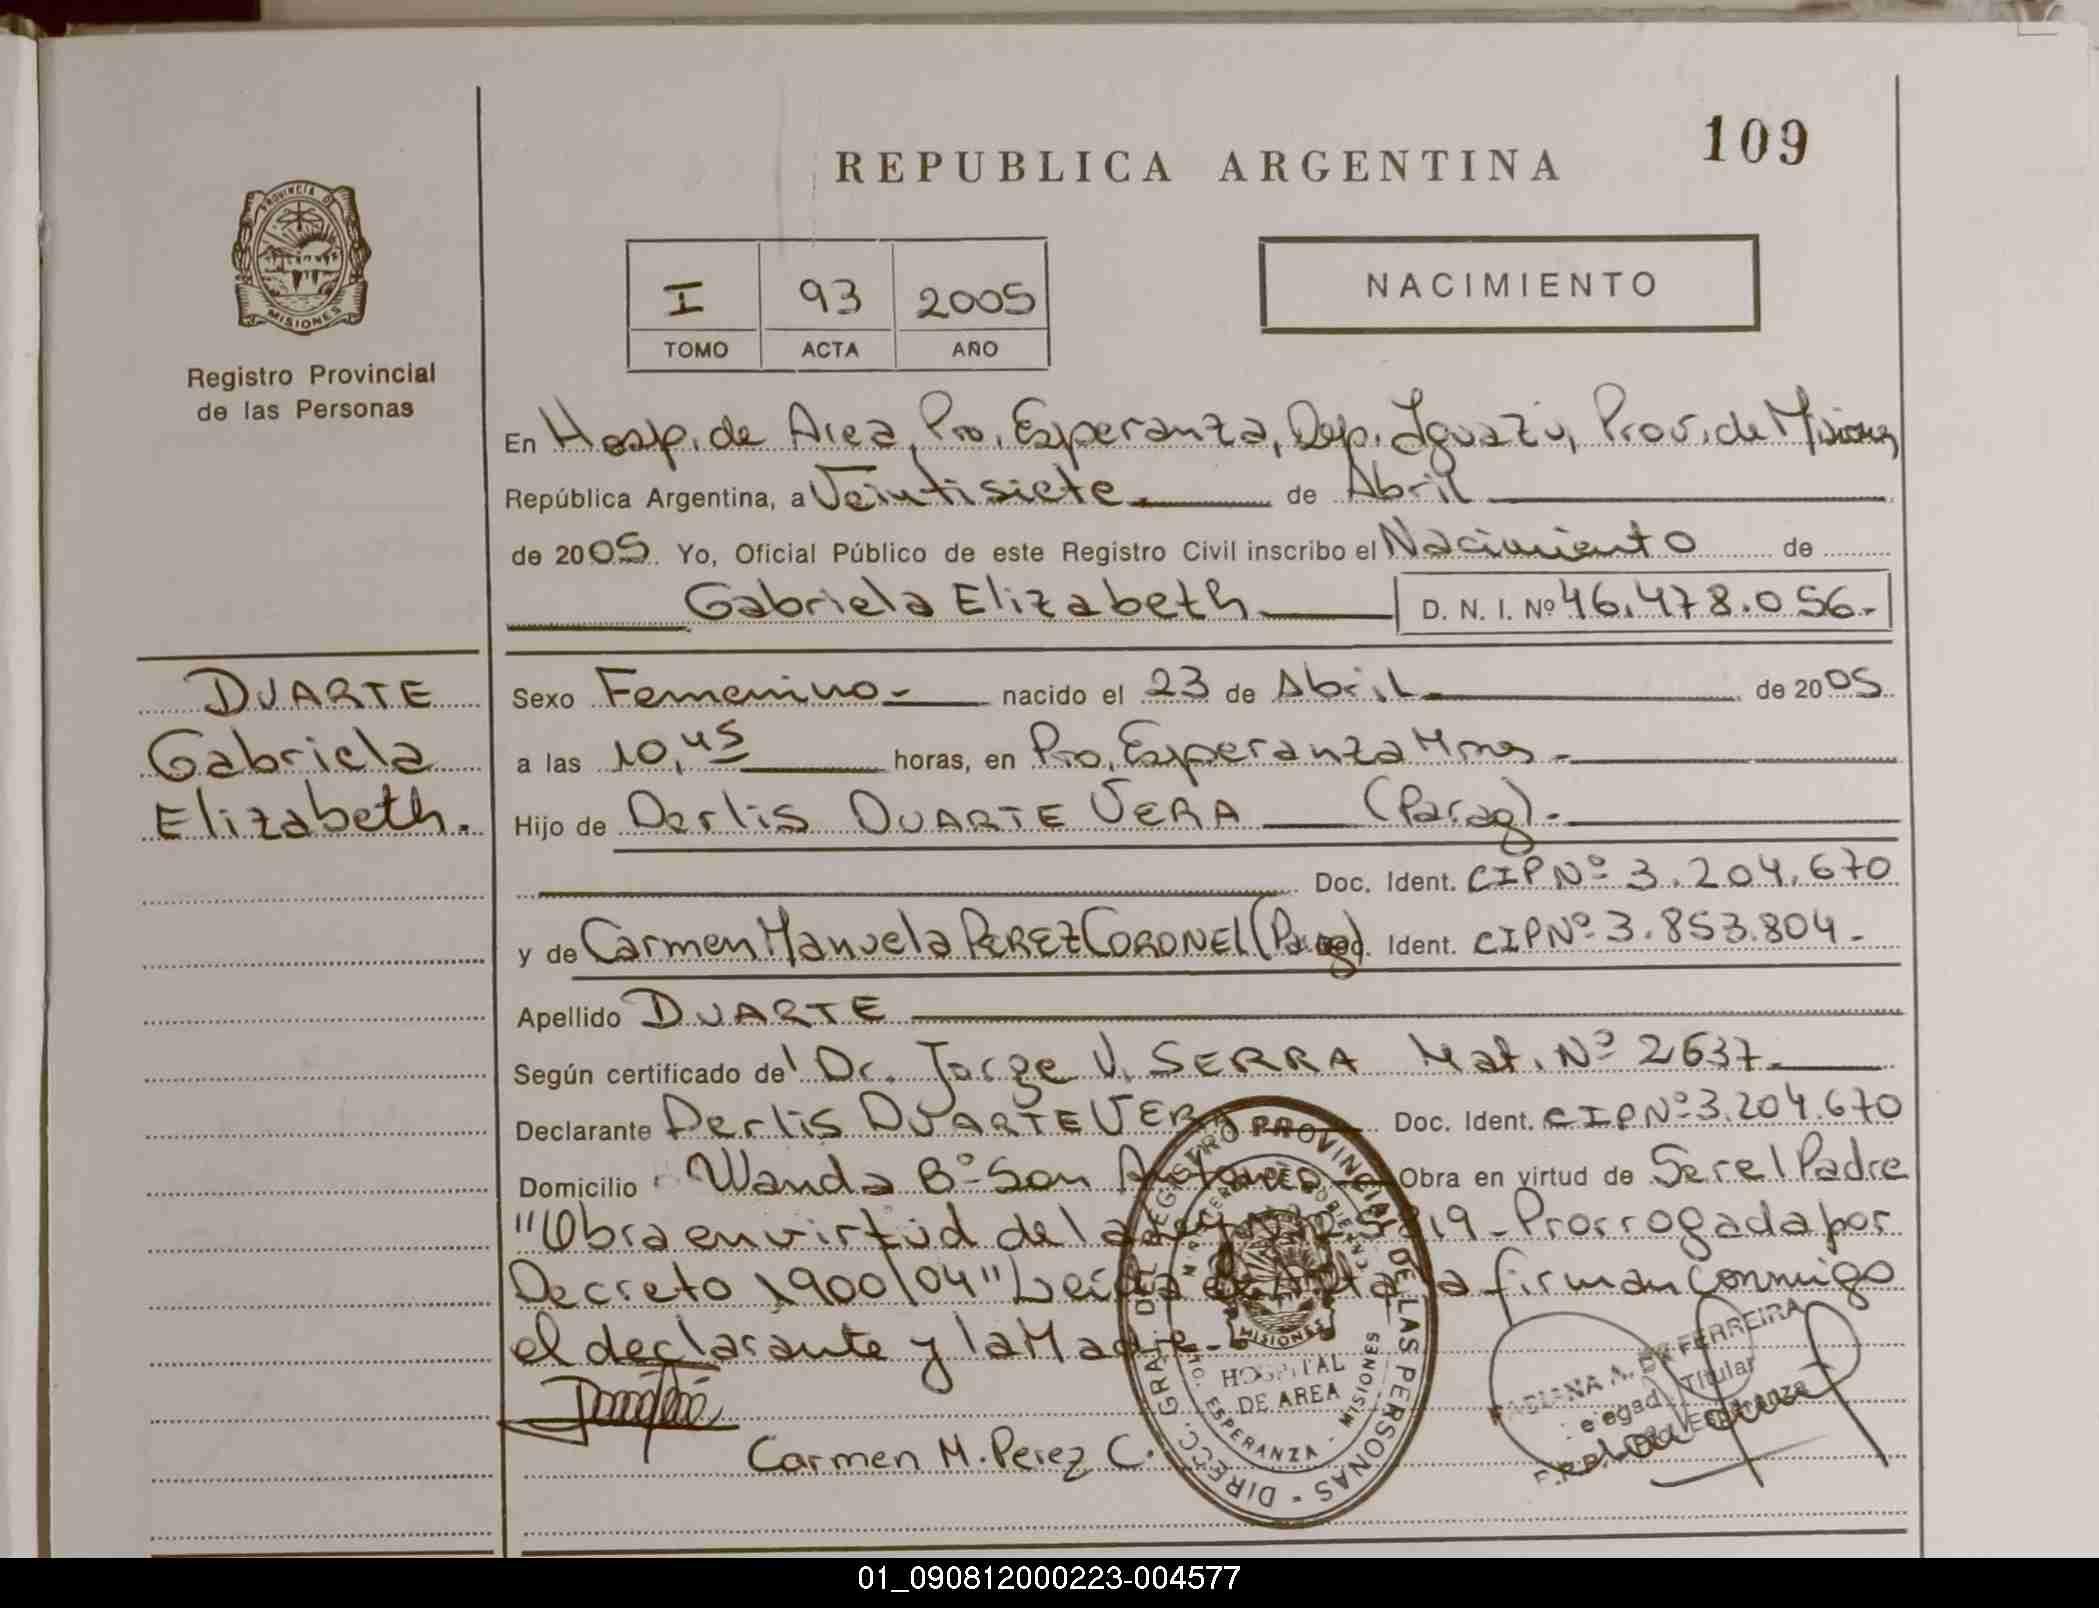 109
REPUBLICA ARGENTINA
PROVINCIA DE
MISIONES
Registro Provincial
de las Personas
I 93 2005
TOMO ACTA AÑO
NACIMIENTO
En Hosp. de Area, Pto. Esperanza, Dep. Iguazú, Prov. de Misiones
República Argentina, a Veintisiete.- de Abril
de 2005. Yo, Oficial Público de este Registro Civil inscribo el Nacimiento de
Gabriela Elizabeth D. N. I. Nº 46.478.056.-
DUARTE
Gabriela
Elizabeth.
Sexo Femenino.- nacido el 23 de Abril de 2005
a las 10,45 horas, en Pto. Esperanza Mnes.-
Hijo de Derlis DUARTE VERA (Parag).-
Doc. Ident. CIP Nº 3.204.670
y de Carmen Manuela PEREZ CORONEL (Parag). Ident. CIP Nº 3.853.804.-
Apellido DUARTE
Según certificado del Dr. Jorge V. SERRA Mat. Nº 2637.-
Declarante Derlis DUARTE VERA Doc. Ident. CIP Nº 3.204.670
Domicilio Wanda Bº San Antonio Obra en virtud de Ser el Padre
"Obra en virtud de la Ley Nº 25819 - Prorrogada por
Decreto 1900/04" Leída el Acta la firman conmigo
el declarante y la Madre.-
Carmen M. Perez C.
DIRECC. GRAL. DEL REGISTRO PROVINCIAL DE LAS PERSONAS
MISIONES
HOSPITAL
DE AREA
ESPERANZA - MISIONES
DE FERREIRA
Titular
01_090812000223-004577